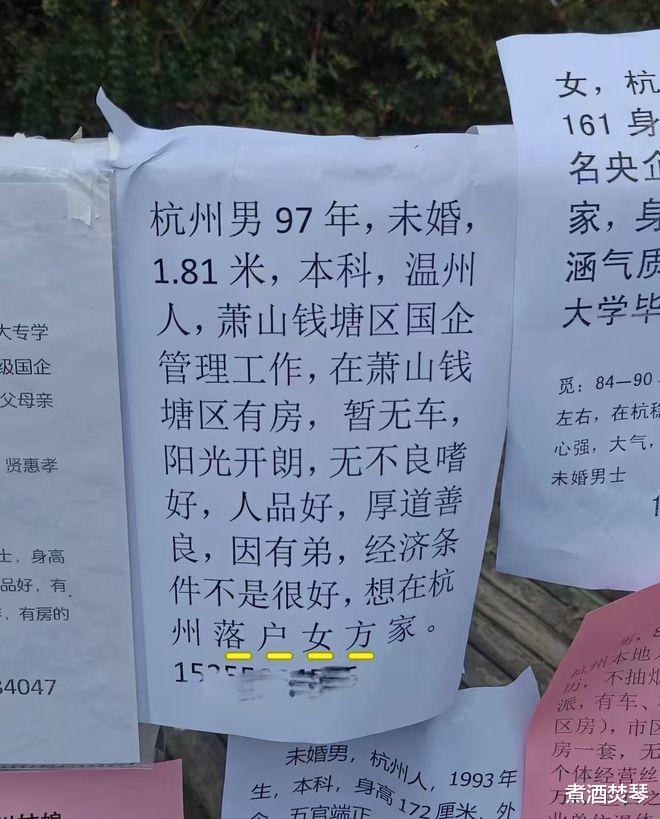 大专学
级国企
父母亲
贤惠孝
士，身高
品好，有
，有房的
34047
杭州男 97 年，未婚，
1.81 米，本科，温州
人，萧山钱塘区国企
管理工作，在萧山钱
塘区有房，暂无车，
阳光开朗，无不良嗜
好，人品好，厚道善
良，因有弟，经济条
件不是很好，想在杭
州落户女方家。
女，杭
161 身
名央企
家，身
涵气质
大学毕
觅：84—90
左右，在杭稳
心强，大气，
未婚男士
未婚男，杭州人，1993年
生，本科，身高172厘米，外
五官端正
杭州本地
不抽烟
派，有车、
区房），市区
房一套，无
个体经营丝
煮酒焚琴